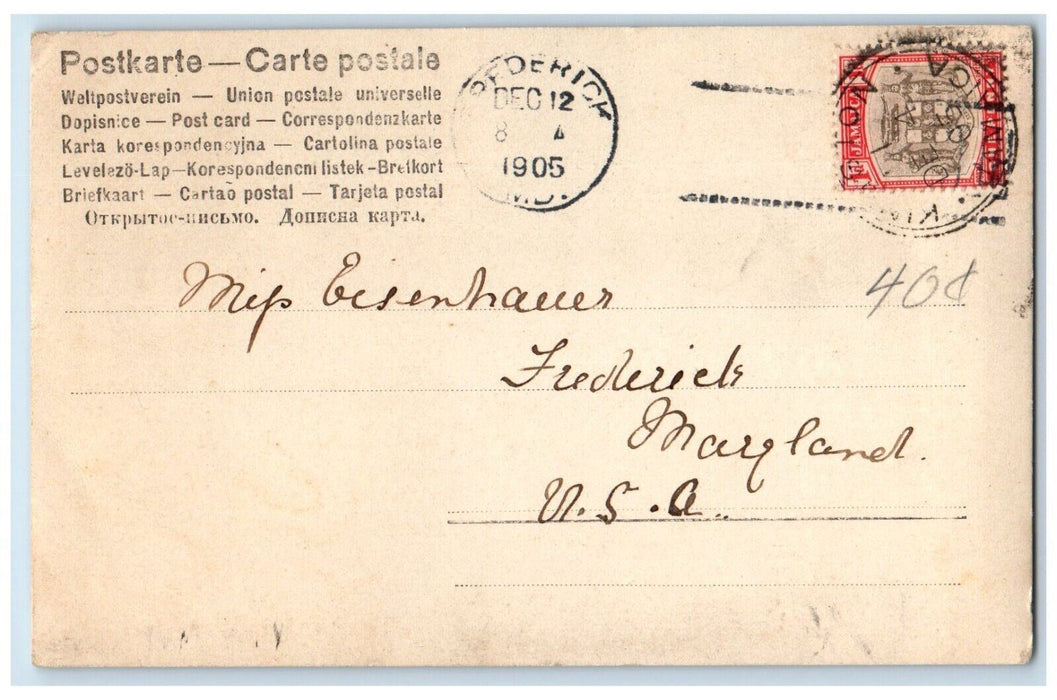 Postkarte — Carte postale
Weltpostverein — Union postale universelle
Dopisnice — Post card — Correspondenzkarte
Karta korespondencyjna — Cartolina postale
Levelező-Lap—Korespondencni listek-Brefkort
Briefkaart — Cartaõ postal — Tarjeta postal
Открытое-письмо. Дописна карта.
FREDERICK
DEC 12
8 A
1905
MD.
JAMAICA
KINGSTON
JAMAICA
40¢
Miss Eisenhauer
Frederick
Maryland.
U.S.A.